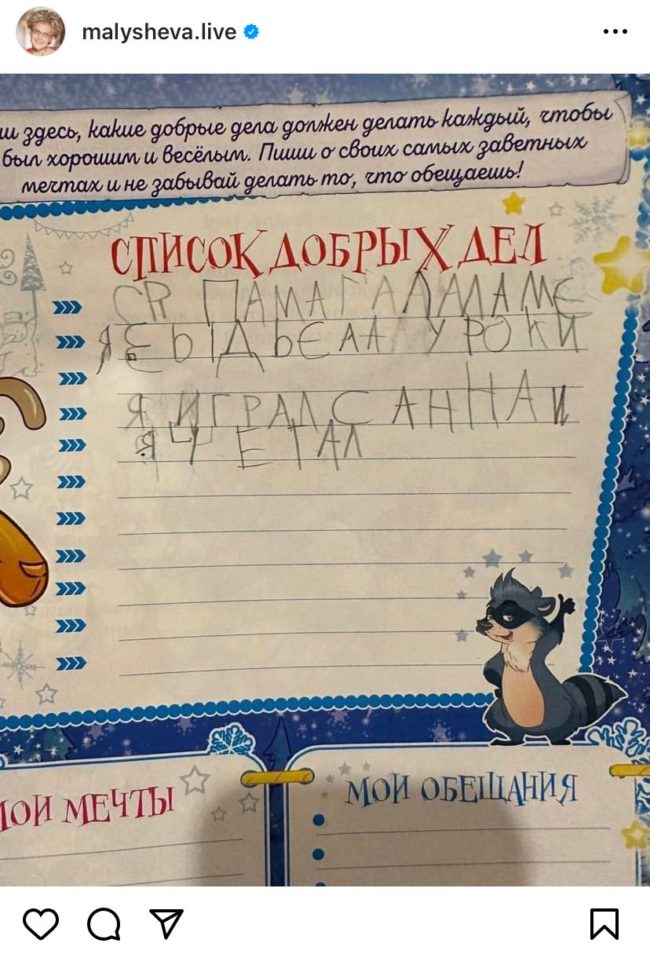 malysheva.live
ши здесь, какие добрые дела должен делать каждый, чтобы
был хорошим и весёлым. Пиши о своих самых заветных
мечтах и не забывай делать то, что обещаешь!
СПИСОК ДОБРЫХ ДЕЛ
СЯ ПАМАГАЛ МАМЕ
Я ЕЫДЬЕЛАЛ УРОКИ
Я ИГРАЛ С АННАИ
Я ЧЕТАЛ
МОИ МЕЧТЫ
МОИ ОБЕЩАНИЯ